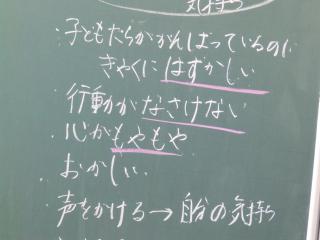 気持ち
・子どもたちががんばっているのに
ぎゃくにはずかしい
・行動がなさけない
・心がもやもや
・おかしい
・声をかける→自分の気持ち